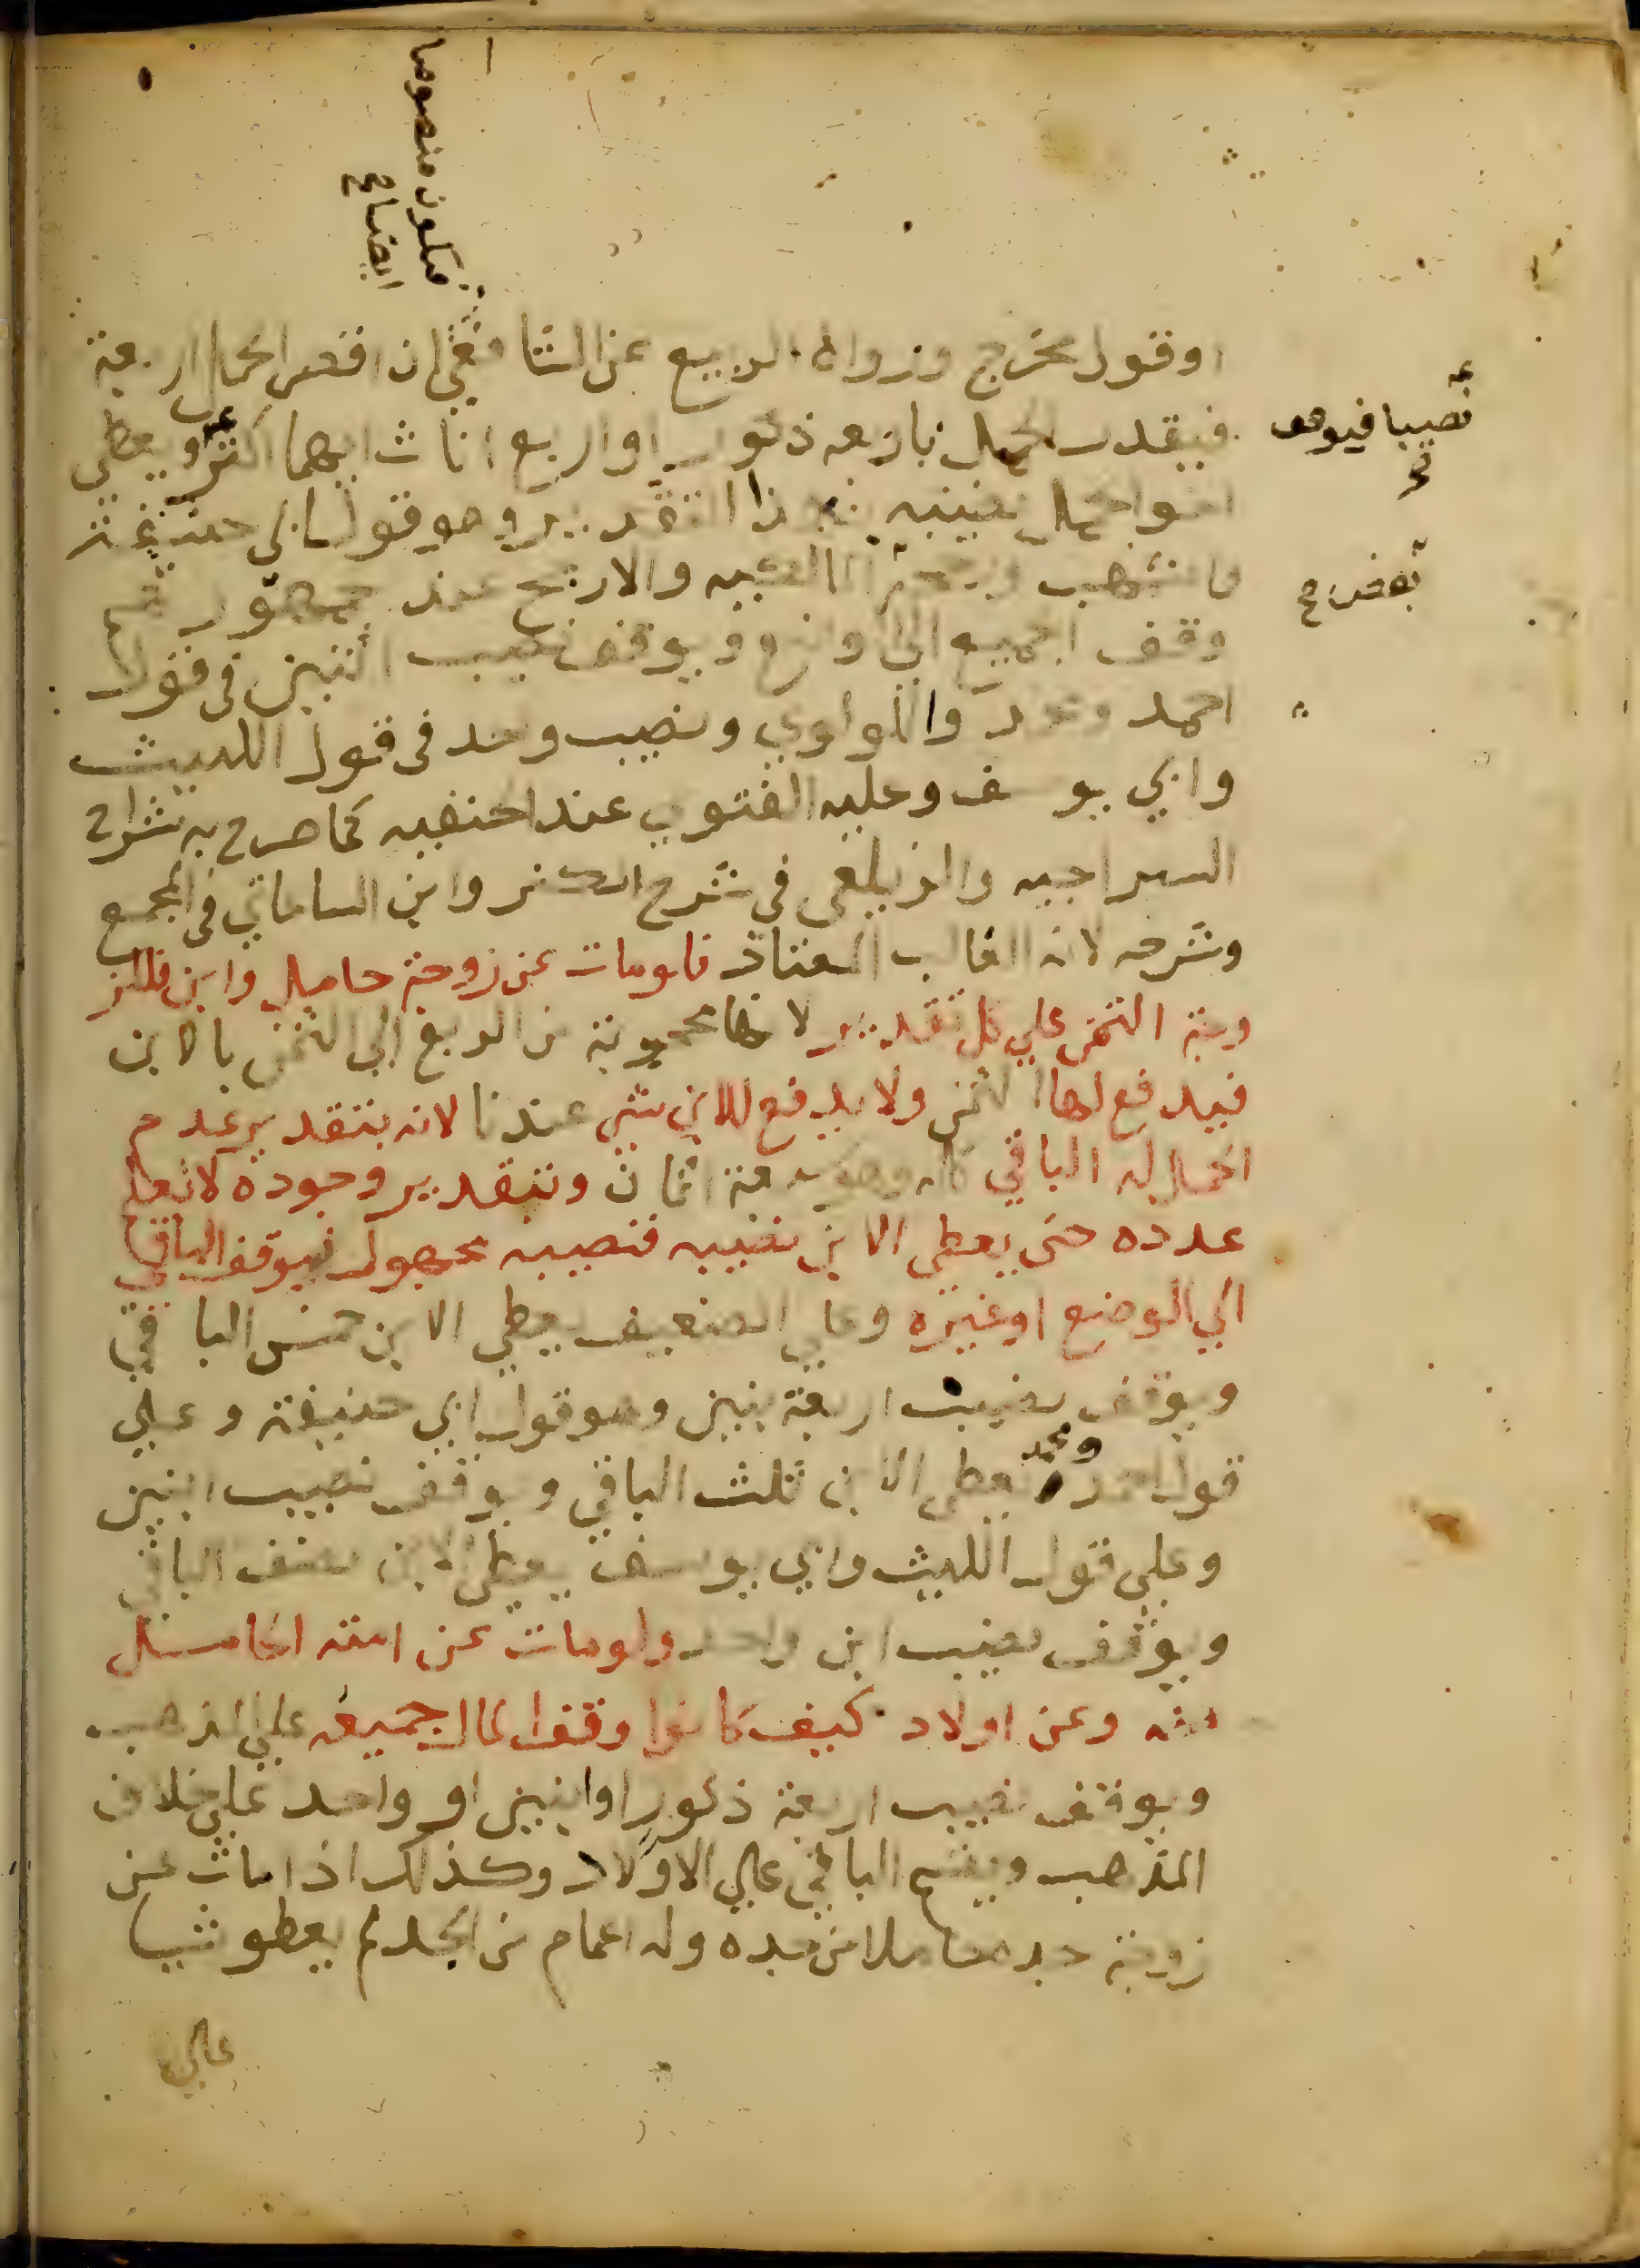 فيكون منصوصا
ايضا صح
او قول مخرج ورواه الربيع عن الشافعي ان اقصى الحمل اربعة
فيقدر الحمل باربعة ذكور او اربع اناث ايهما اكثر ويعطي
نصيبا فيوقف صح
بهذا التقدير وهو قول ابي حنيفة
والارجح عند جمهورهم
بعضهم صح
وقف الجميع الى ويوقف نصيب اثنين في قول
احمد واللولوي ونصيب واحد في قول الليث
وابي يوسف وعليه الفتوي عند الحنفيه كما صرح به شراح
السراجيه والزيلعي في شرح الكنز وابن الساعاتي في المجمع
وشرحه لانه الغالب المعتاد فلو مات عن زوجة حامل وابن فللز
وجة الثمن علي كل تقدير لانها محجوبة من الربع الي الثمن بالابن
فيدفع لها الثمن ولا يدفع للابن شي عندنا لانه بتقدير عدم
الحمل له الباقي كله وهو سبعة اثمان وبتقدير وجوده لا نعلم
عدده حتى يعطي الابن نصيبه فنصيبه مجهول فيوقف الباقي
الي الوضع او غيره وعلي الضعيف يعطي الابن خمس الباقي
ويوقف نصيب اربعة بنين وهو قول ابي حنيفة وعلي
قول احمد ومحمد يعطي الابن ثلث الباقي ويوقف نصيب ابنين
وعلي قول الليث وابي يوسف يعطي الابن نصف الباقي
ويوقف نصيب ابن واحد ولو مات عن امته الحامل
منه وعن اولاد كيف كانوا وقف المال جميعه علي المذهب
ويوقف نصيب اربعة ذكور او ابنين او واحد علي خلاف
المذهب ويقسم الباقي علي الاولاد وكذلك اذا مات عن
زوجة جده حاملا من جده وله اعمام من الجد لم يعطو شيا
علي